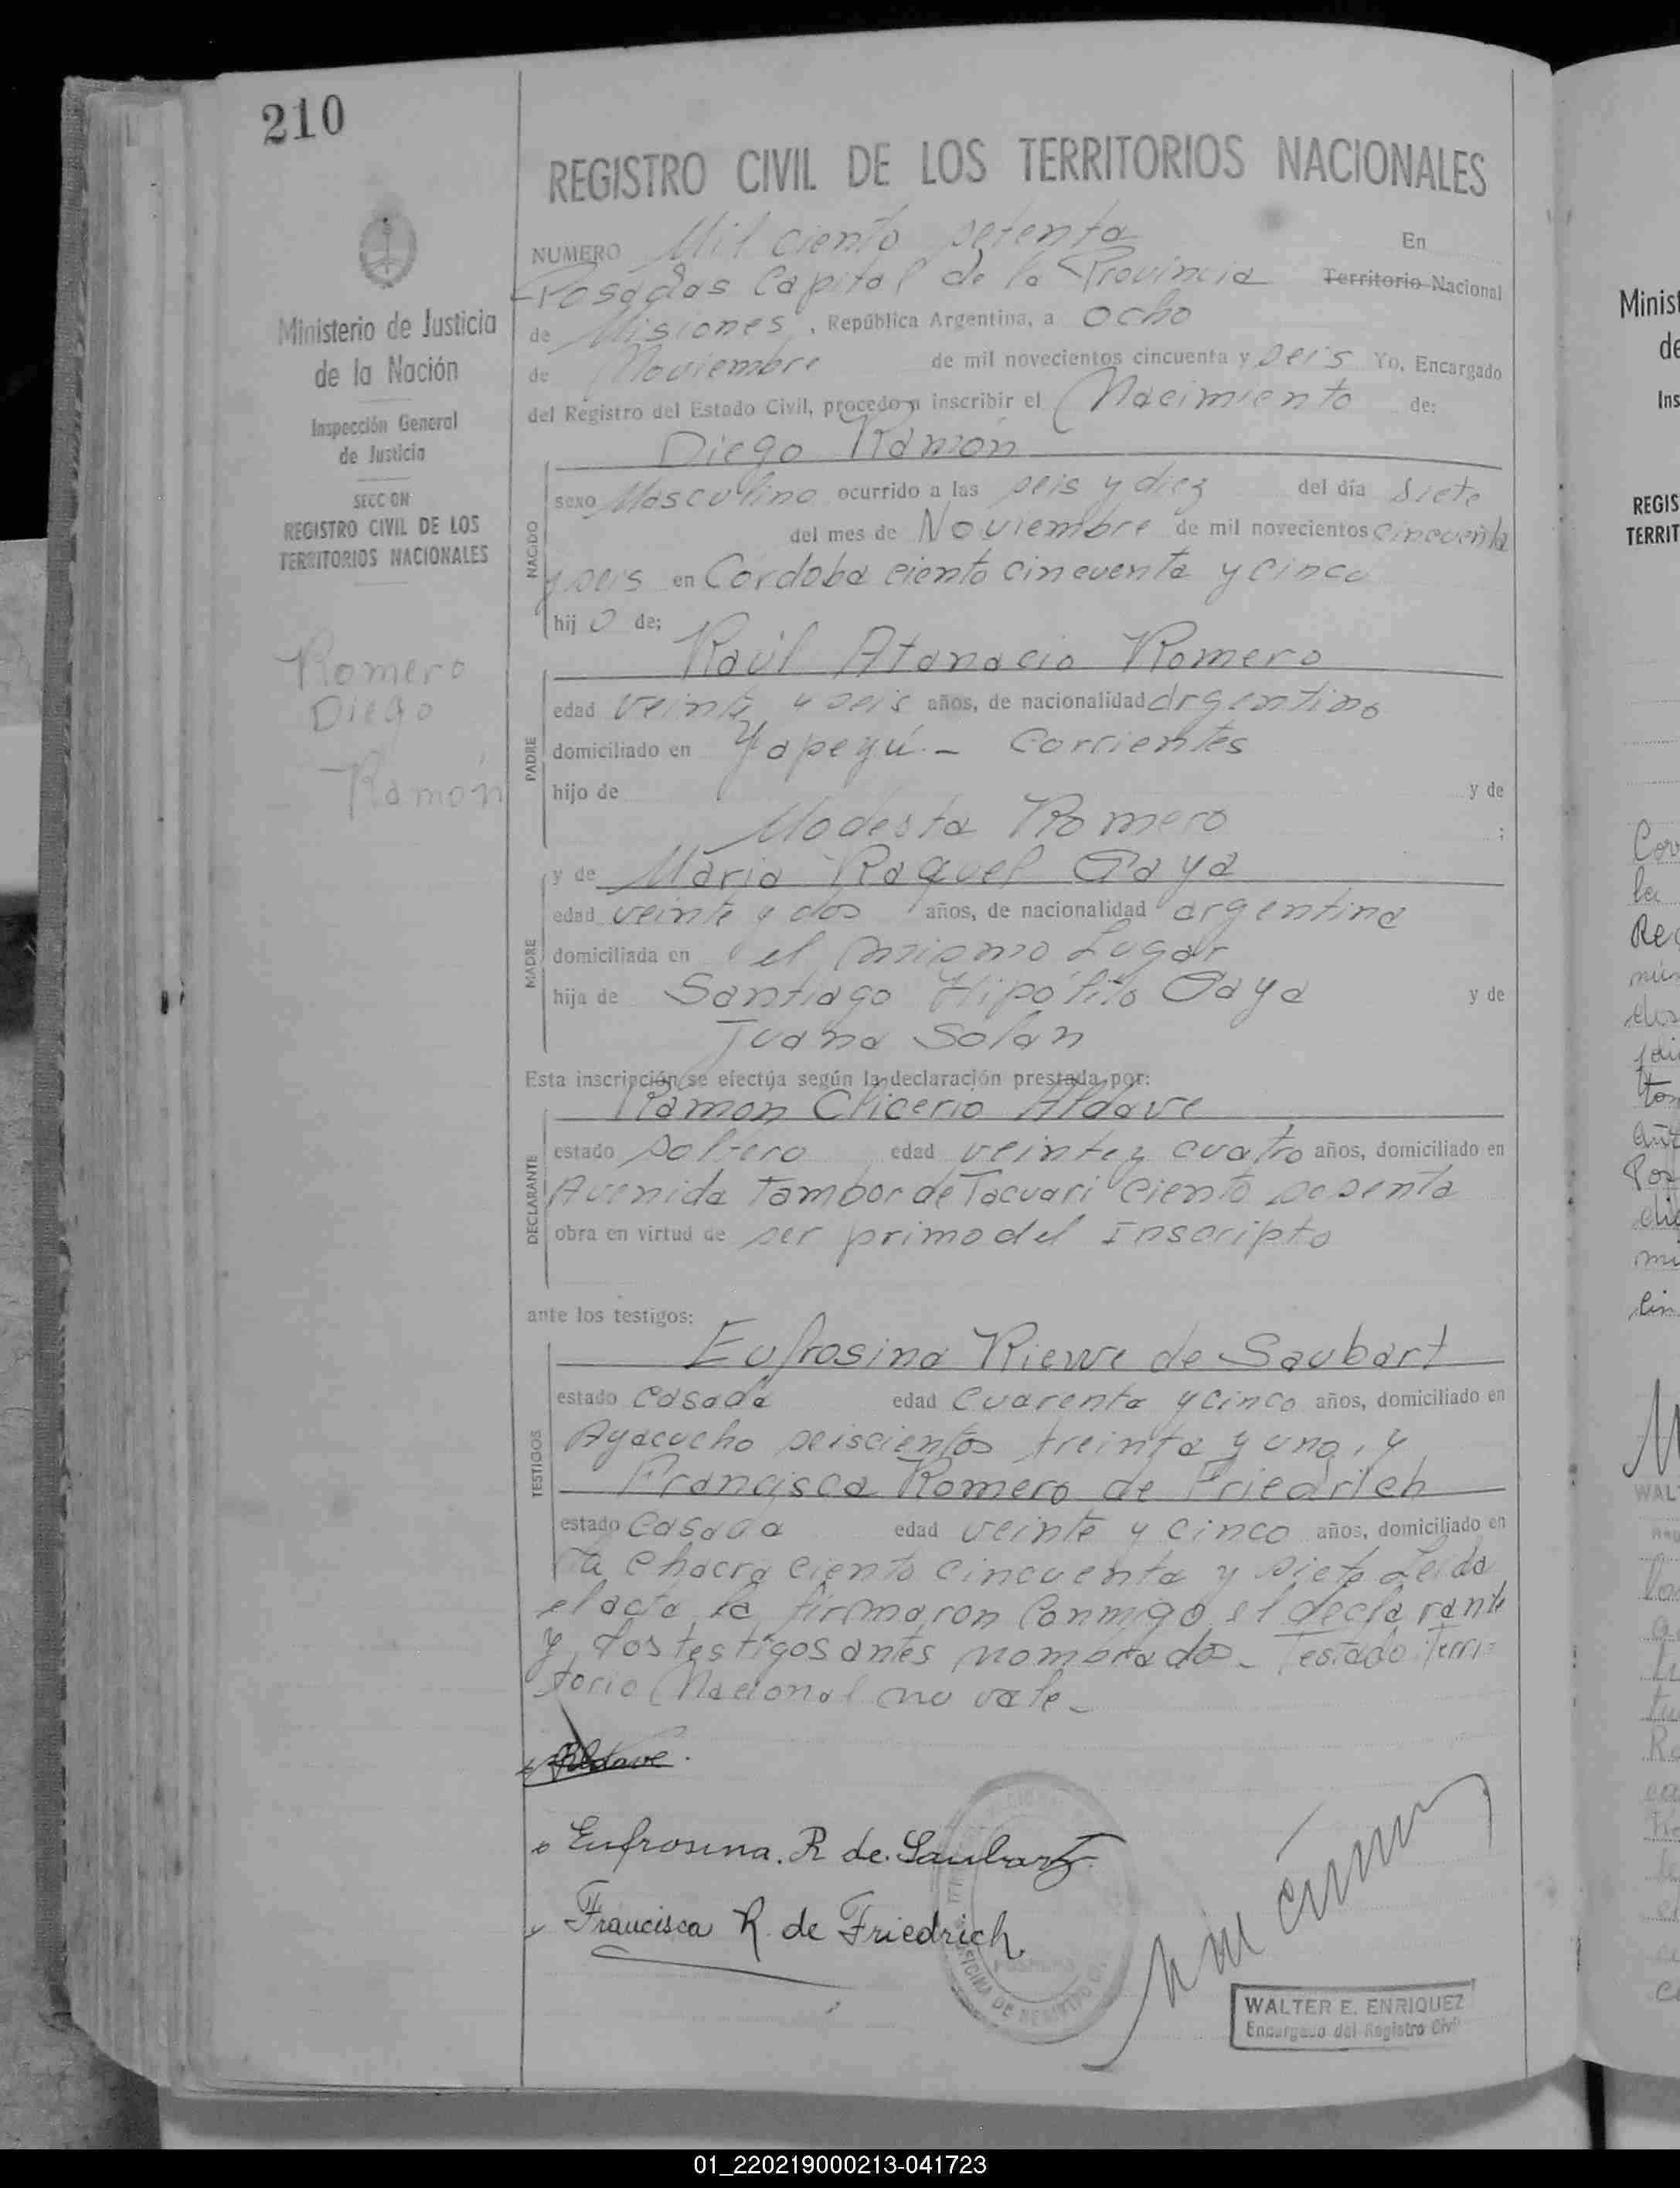 210
REGISTRO CIVIL DE LOS TERRITORIOS NACIONALES
NUMERO Mil ciento setenta En
Posadas Capital de la Provincia Territorio Nacional
de Misiones, República Argentina, a ocho
de Noviembre de mil novecientos cincuenta y seis Yo, Encargado
del Registro del Estado Civil, procedo a inscribir el Nacimiento de:
Diego Ramón
NACIDO
sexo Masculino ocurrido a las seis y diez del día siete
del mes de Noviembre de mil novecientos cincuenta
y seis en Cordoba ciento cincuenta y cinco
hijo de:
Raúl Atanacio Romero
PADRE
edad veinte y seis años, de nacionalidad argentino
domiciliado en Yapeyú - Corrientes
hijo de y de
Modesta Romero ;
y de Maria Raquel Gaya
MADRE
edad veinte y dos años, de nacionalidad argentina
domiciliada en el mismo Lugar
hija de Santiago Hipólito Gaya y de
Juana Solan
Esta inscripción se efectúa según la declaración prestada por:
Ramon Clicerio Aldave
DECLARANTE
estado soltero edad veinte y cuatro años, domiciliado en
Avenida Tambor de Tacuari ciento sesenta
obra en virtud de ser primo del Inscripto
ante los testigos:
Eufrosina Riewe de Saubart
TESTIGOS
estado casada edad cuarenta y cinco años, domiciliado en
Ayacucho seiscientos treinta y uno, y
Francisca Romero de Friedrich
estado casada edad veinte y cinco años, domiciliado en
la chacra ciento cincuenta y siete Leida
el acta la firmaron conmigo el declarante
y los testigos antes nombrados - Testado: Terri=
torio Nacional no vale -
Aldave.
Eufrosina. R de. Saubart
Francisca R. de Friedrich
WALTER E. ENRIQUEZ
Encargado del Registro Civil
Ministerio de Justicia
de la Nación
Inspección General
de Justicia
SECCION
REGISTRO CIVIL DE LOS
TERRITORIOS NACIONALES
Romero
Diego
Ramón
Minist
REGIS
TERRIT
01_220219000213-041723